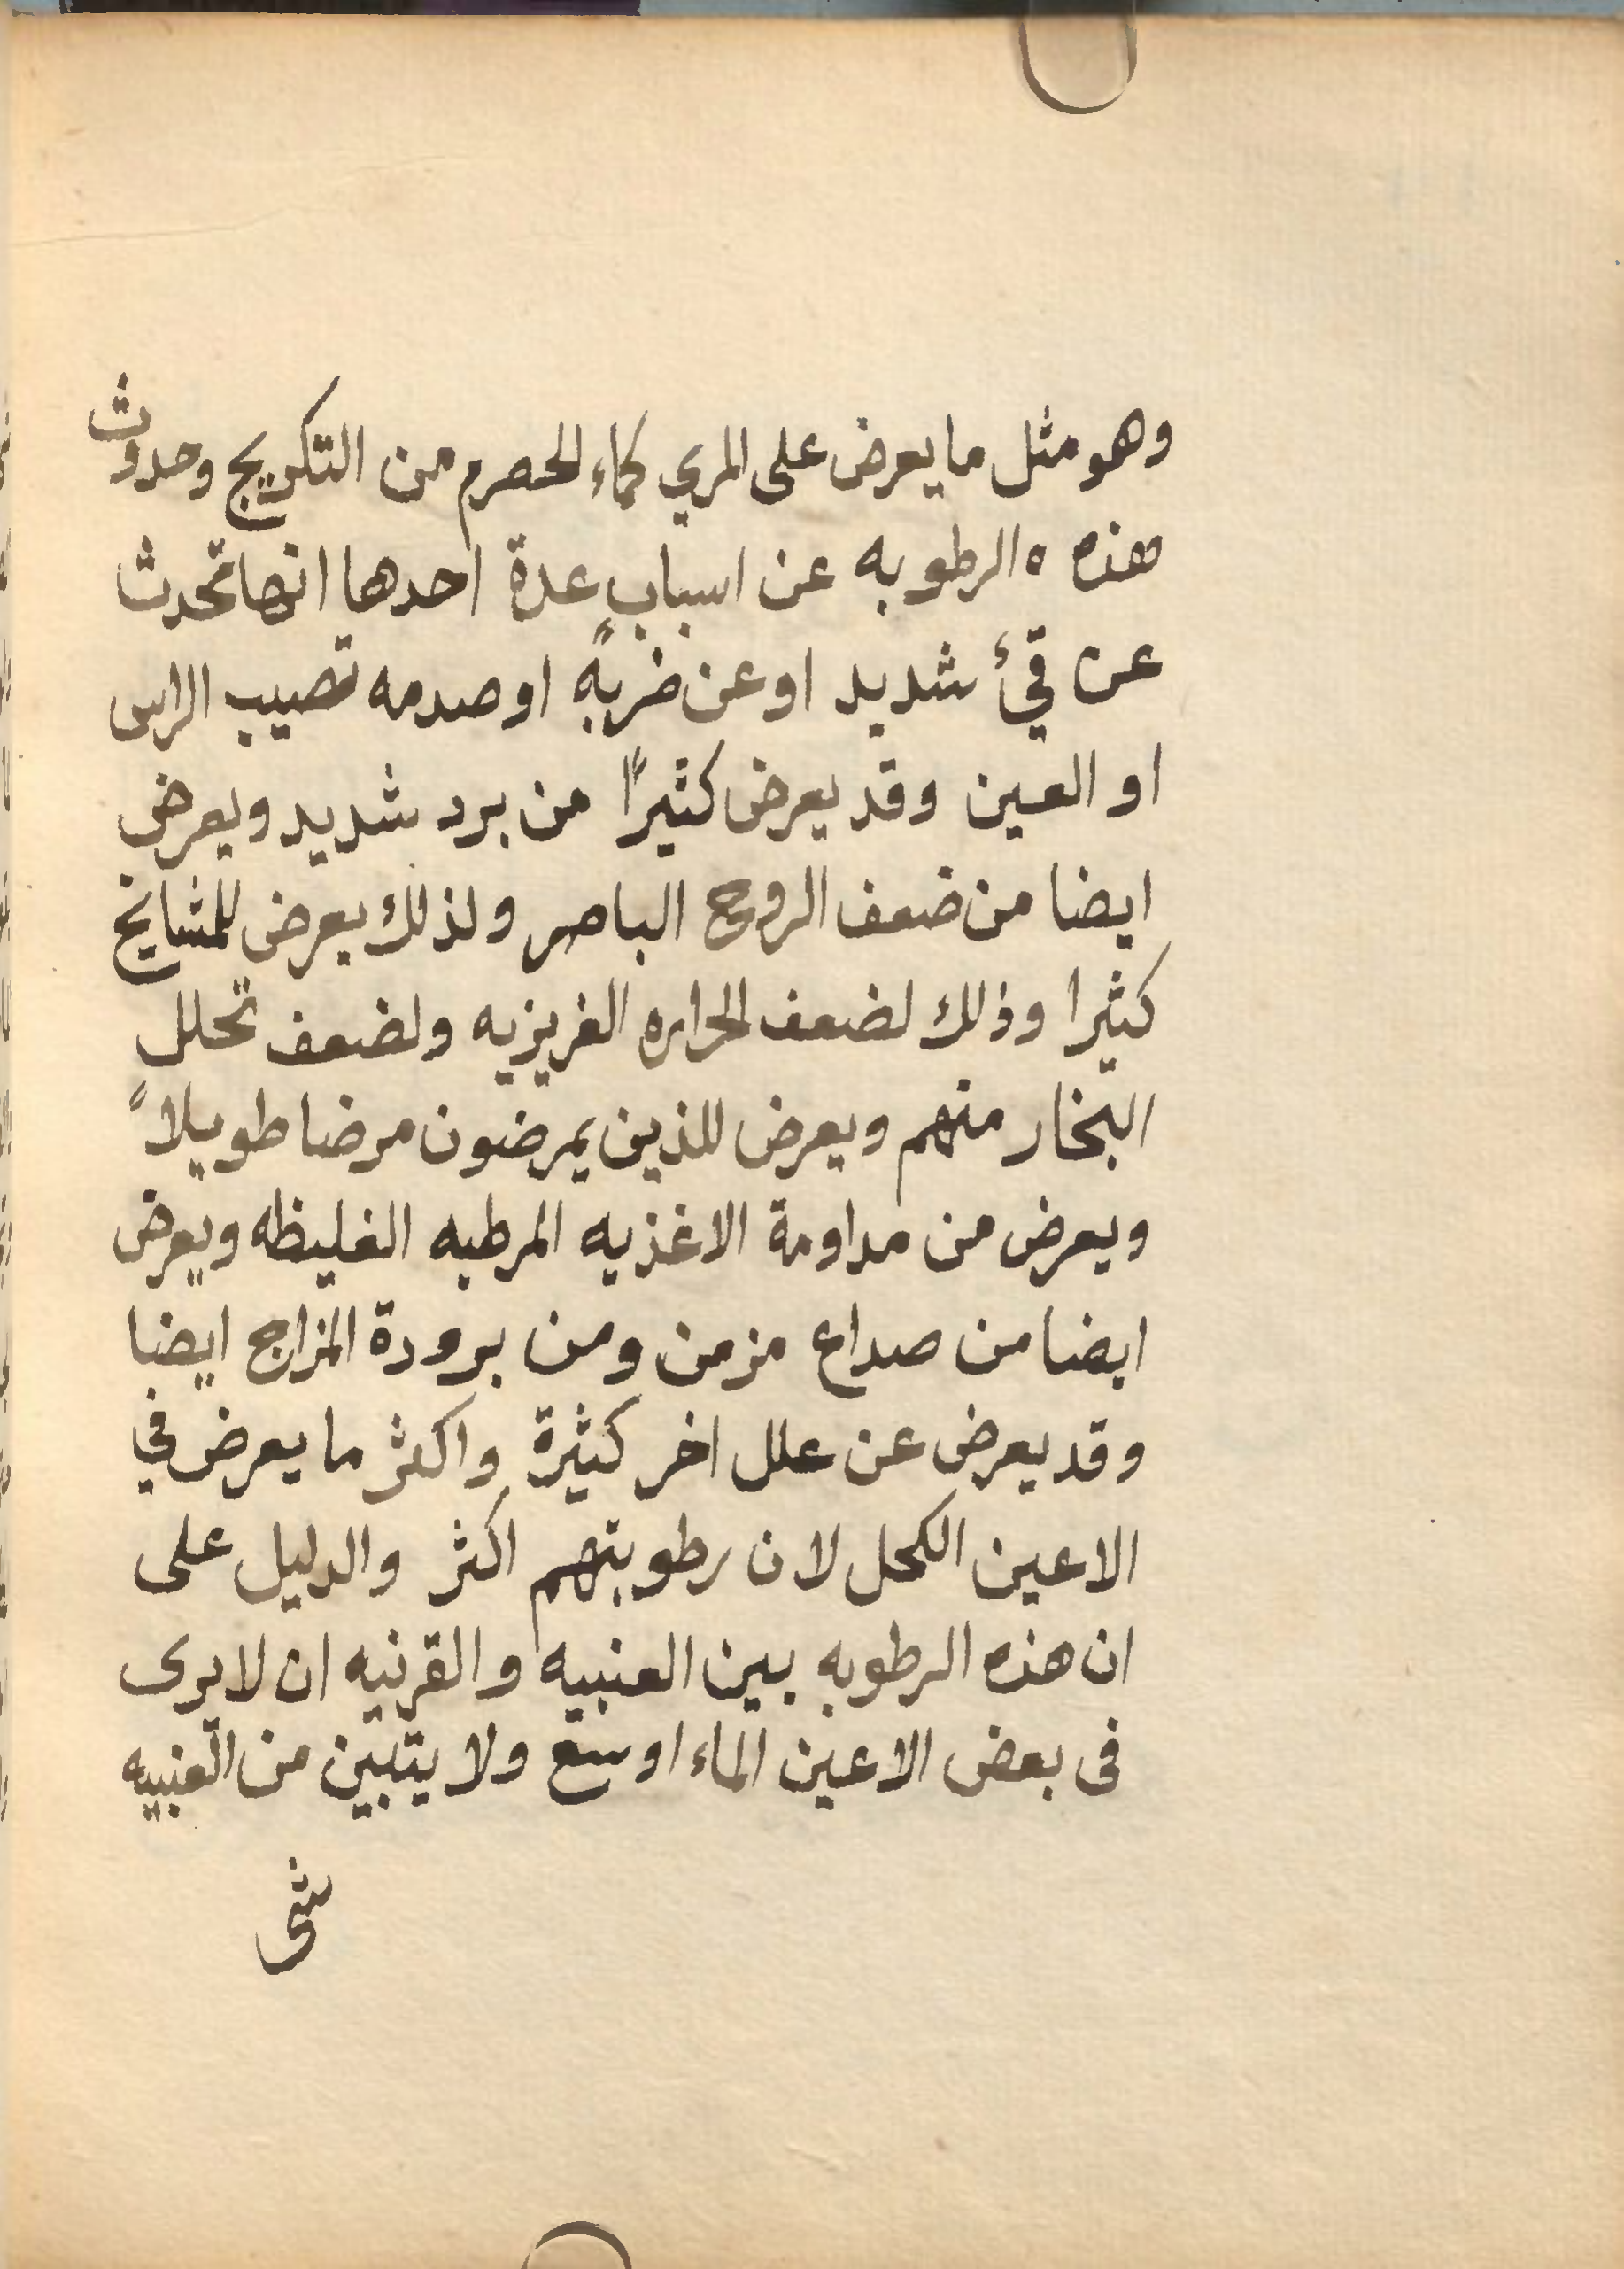 وهو مثل ما يعرض على المري كماء الحصرم من التكريج وحدوث
هذه ه الرطوبه عن اسباب عدة احدها انها تحدث
عن قئ شديد او عن ضربةٍ او صدمه تصيب الراس
او العين وقد يعرض كثيرًا من برد شديد ويعرض
ايضا من ضعف الروح الباصر ولذلك يعرض للمشايخ
كثيرا وذلك لضعف الحراره الغريزيه ولضعف تحلل
البخار منهم ويعرض للذين يمرضون مرضا طويلاً
ويعرض من مداومة الاغذيه المرطبه الغليظه ويعرض
ايضا من صداع مزمن ومن برودة المزاج ايضا
وقد يعرض عن علل اخر كثيرة واكثر ما يعرض في
الاعين الكحل لان رطوبتهم اكثر والدليل على
ان هذه الرطوبه بين العنبيه والقرنيه ان لا يرى
فى بعض الاعين الماء اوسع ولا يتبين من العنبيه
شى